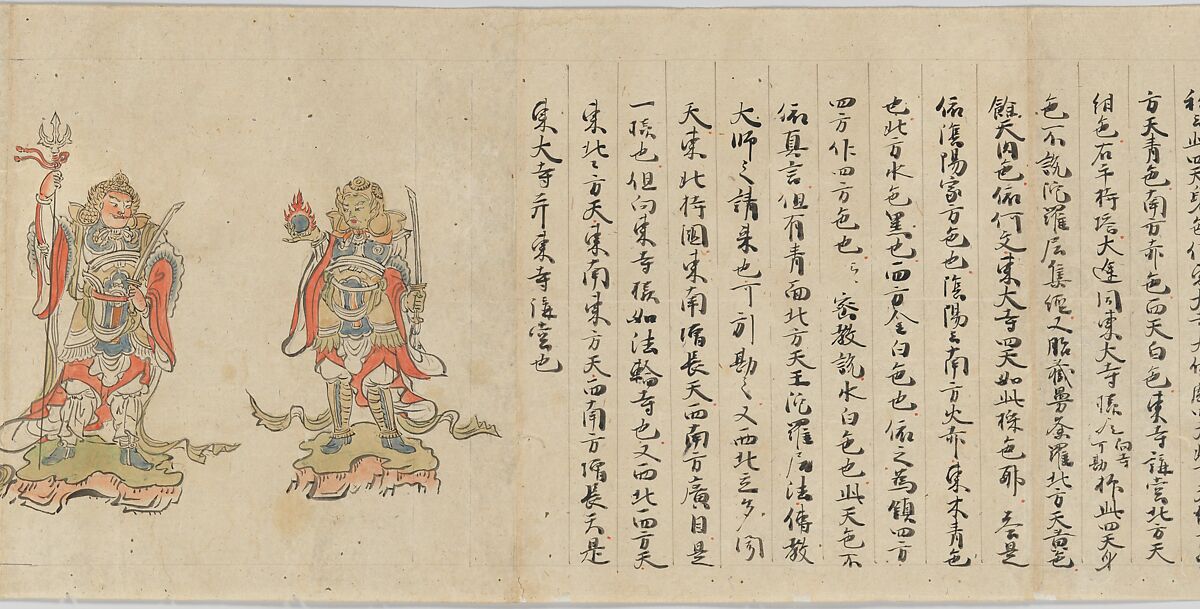 方天青色南方赤色西天白色東寺講堂北方天
紺色右手持塔大途同東大寺様
向寺
可勘
抑此四天身
色不説陀羅尼集經又胎蔵曼荼羅北方天黄色
餘天肉色依何文東大寺四天如此採色耶 答是
依陰陽家方色也陰陽云南方火赤東木青色
也北方水色黒也西方金白色也依之為鎮四方
四方作四方色也云云 密教説水白色也此天色不
依真言但有青面北方天王陀羅尼法傳教
大師之請来也可引勘之又西北云多聞
天東北持國東南増長天西南方廣目是
一様也但向東寺様如法輪寺也又西北西方天
東北北方天東南東方天西南方増長天是
東大寺并東寺講堂也